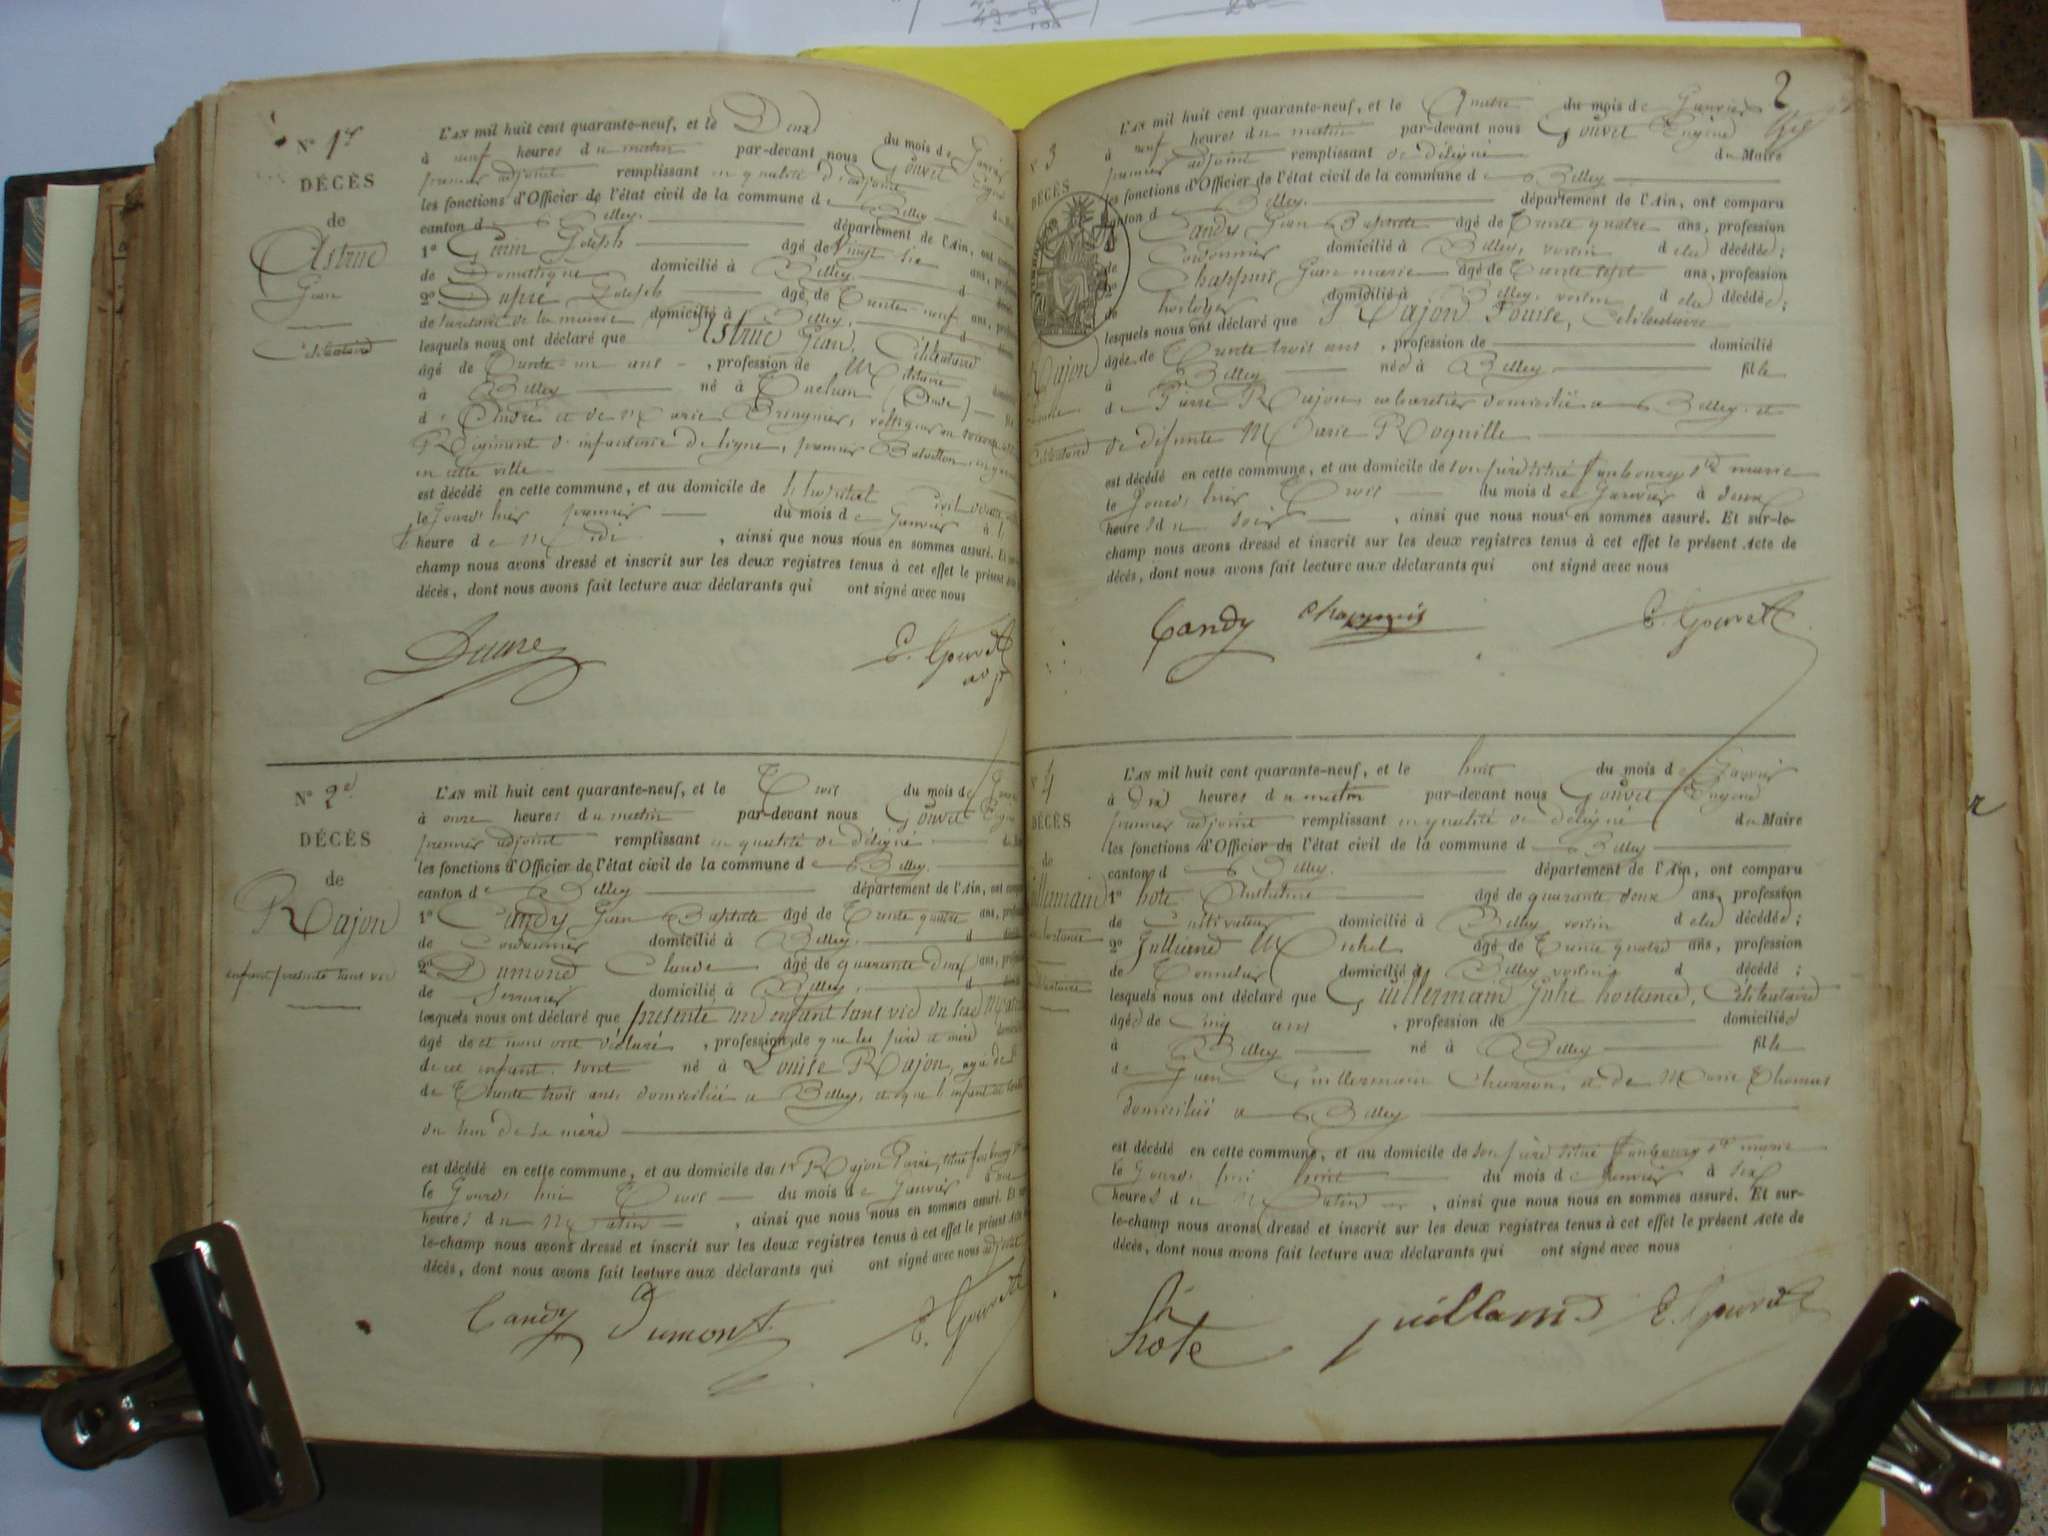 N° 1er
DÉCÈS
de
Astruc
Jean
Célibataire
L'AN mil huit cent quarante-neuf, et le Deux du mois de Janvier
à neuf heures du matin par-devant nous Gouvet Eugène
premier adjoint remplissant en qualité d'adjoint
les fonctions d'Officier de l'état civil de la commune de Belley
canton de Belley département de l'Ain, ont comparu
1° Joseph âgé de Vingt six ans,
de Domestique domicilié à Belley
2° Dupré Joseph âgé de Trente neuf ans,
de la mairie domicilié à Belley
lesquels nous ont déclaré que Astruc Jean, Célibataire
âgé de Trente un ans, profession de Militaire
à Belley né à Tuchan (Aude)
d'André et de Marie voltigeur au
Régiment d'infanterie de ligne, premier Bataillon, en
en cette ville
est décédé en cette commune, et au domicile de l'hopital civil
le jourd'hier premier du mois de Janvier à l'
heure de Midi, ainsi que nous nous en sommes assuré. Et
champ nous avons dressé et inscrit sur les deux registres tenus à cet effet le présent
décès, dont nous avons fait lecture aux déclarants qui ont signé avec nous
E. Gouvet
N° 2e
DÉCÈS
de
Rajon
enfant présenté sans vie
L'AN mil huit cent quarante-neuf, et le Trois du mois de
à onze heures du matin par-devant nous Gouvet
premier adjoint remplissant en qualité de délégué
les fonctions d'Officier de l'état civil de la commune de Belley
canton de Belley département de l'Ain, ont
1° Candy Jean Baptiste âgé de Trente quatre ans,
de Cordonnier domicilié à Belley
2° Dumond Claude âgé de quarante deux ans,
de Serrurier domicilié à Belley
lesquels nous ont déclaré que présenté un enfant sans vie du sexe
âgé de et nous ont déclaré, profession de que les père et mère
de cet enfant sont né à Louise Rajon, agée
de Trente trois ans domiciliée a Belley, et que l'enfant est
du sein de sa mère
est décédé en cette commune, et au domicile de sr Rajon Pierre, situé faubourg
le Jourd'hui Trois du mois de Janvier à
heures du Matin, ainsi que nous nous en sommes assuré. Et
le-champ nous avons dressé et inscrit sur les deux registres tenus à cet effet le présent Acte
décès, dont nous avons fait lecture aux déclarants qui ont signé avec nous adjoint
Candy Dumont E. Gouvet
2
3
DÉCÈS
de
Rajon
Célibataire
L'AN mil huit cent quarante-neuf, et le Quatre du mois de Janvier
à neuf heures du matin par-devant nous Gouvet Eugène
premier adjoint remplissant de délégué du Maire
les fonctions d'Officier de l'état civil de la commune de Belley
canton d Belley. département de l'Ain, ont comparu
Candy Jean Baptiste âgé de Trente quatre ans, profession
Cordonnier domicilié à Belley, voisin d ela décédée;
2° Chappuis Jean marie âgé de Trente sept ans, profession
de horloger domicilié à Belley. voisin d ela décédée;
lesquels nous ont déclaré que Rajon Louise, Célibataire
âgée de Trente trois ans, profession de domicilié
à Belley née à Belley fille
de Pierre Rajon cabaretier domicilié a Belley et
de défunte Marie Roquille
est décédé en cette commune, et au domicile de son père situé faubourg Ste marie
le Jourd'hier Trois du mois de Janvier à deux
heures du soir, ainsi que nous nous en sommes assuré. Et sur-le-
champ nous avons dressé et inscrit sur les deux registres tenus à cet effet le présent Acte de
décès, dont nous avons fait lecture aux déclarants qui ont signé avec nous
Candy Chappuis E. Gouvet
4
DÉCÈS
de
L'AN mil huit cent quarante-neuf, et le huit du mois de Janvier
à Dix heures du matin par-devant nous Gouvet Eugène
premier adjoint remplissant en qualité de délégué du Maire
les fonctions d'Officier de l'état civil de la commune d Belley
canton d Belley. département de l'Ain, ont comparu
1° hote Anthelme âgé de quarante deux ans, profession
de Cultivateur domicilié à Belley voisin d ela décédée;
2° Julliand Michel âgé de Trente quatre ans, profession
de Tonnelier domicilié à Belley voisin d décédé;
lesquels nous ont déclaré que Guillermain Julie hortence, Célibataire
âgée de Cinq ans, profession de domiciliée
à Belley né à Belley fille
de Jean Guillermain Charron, et de Marie Thomas
domiciliés a Belley
est décédé en cette commune, et au domicile de son père situé faubourg Ste marie
le Jourd'hui huit du mois de Janvier à six
heures du Matin, ainsi que nous nous en sommes assuré. Et sur-
le-champ nous avons dressé et inscrit sur les deux registres tenus à cet effet le présent Acte de
décès, dont nous avons fait lecture aux déclarants qui ont signé avec nous
hote E. Gouvet